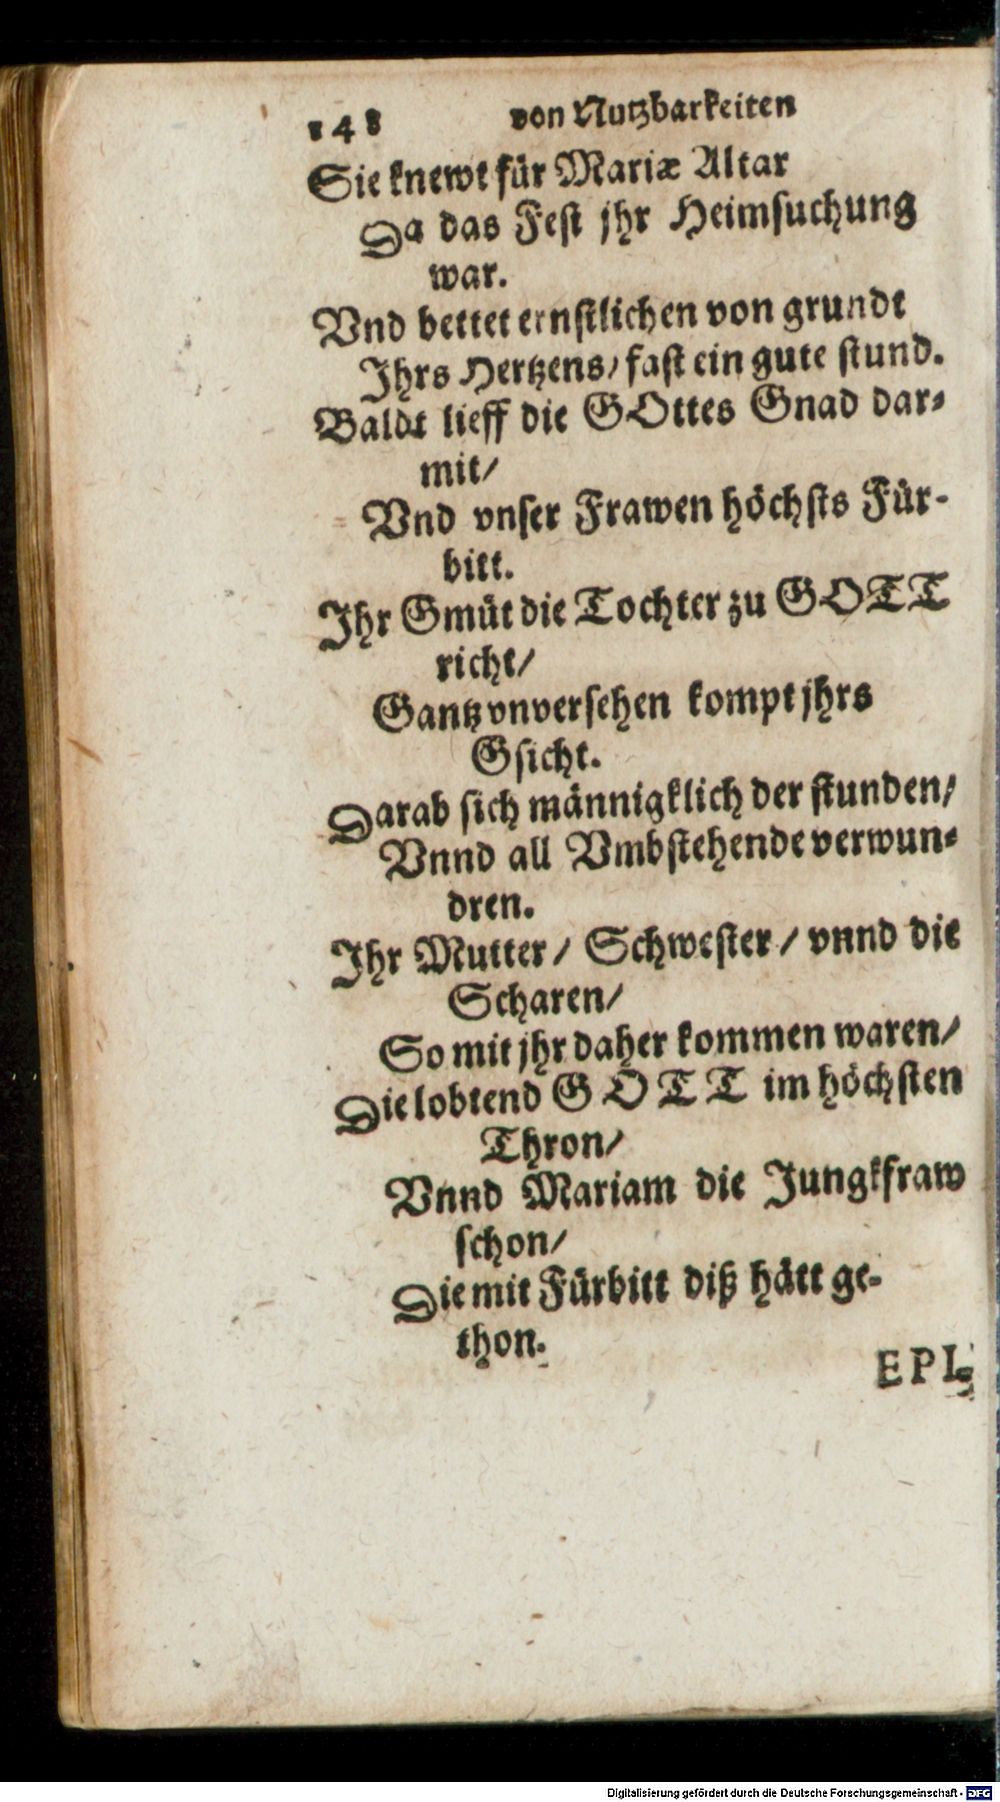 148 von Nutzbarkeiten
Sie knewt für Mariæ Altar
Da das Fest jhr Heimsuchung
war.
Vnd bettet ernstlichen von grundt
Ihrs Hertzens/ fast ein gute stund.
Baldt lieff die GOttes Gnad dar-
mit/
Vnd vnser Frawen höchsts Für-
bitt.
Ihr Gmüt die Tochter zu GOTT
richt/
Gantz vnversehen kompt jhrs
Gsicht.
Darab sich männigklich der stunden/
Vnnd all Vmbstehende verwun-
dren.
Ihr Mutter/ Schwester/ vnnd die
Scharen/
So mit jhr daher kommen waren/
Die lobtend GOTT im höchsten
Thron/
Vnnd Mariam die Jungkfraw
schon/
Die mit Fürbitt diß hätt ge-
thon.
EPI-
Digitalisierung gefördert durch die Deutsche Forschungsgemeinschaft - DFG